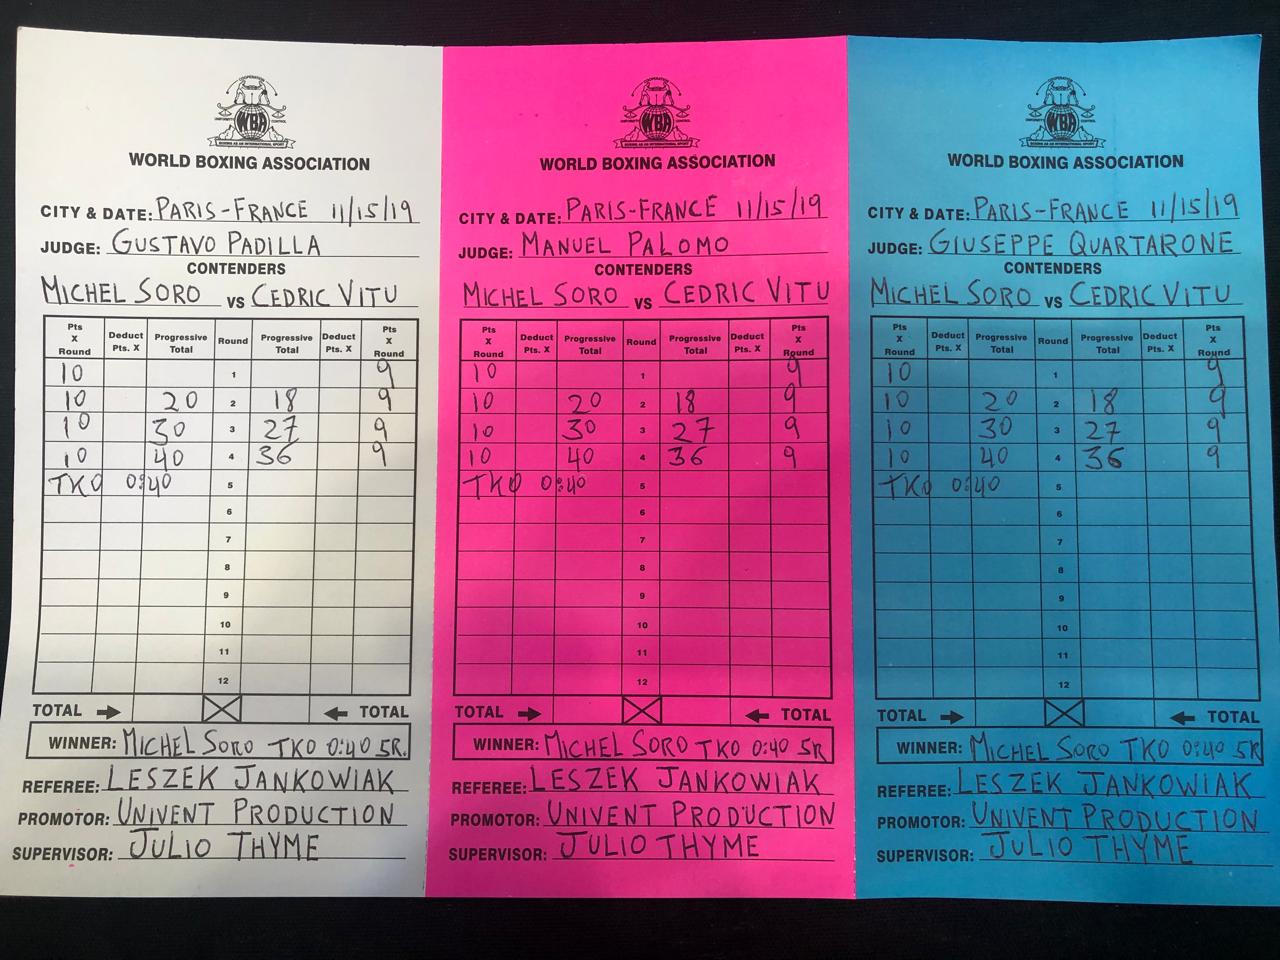 COOPERATION
UNIFORMITY CONTROL
WBA
BOXING AS AN INTERNATIONAL SPORT
WORLD BOXING ASSOCIATION
CITY & DATE: PARIS-FRANCE 11/15/19
JUDGE: GUSTAVO PADILLA
CONTENDERS
MICHEL SORO VS CEDRIC VITU
Pts X Round Deduct Pts. X Progressive Total Round Progressive Total Deduct Pts. X Pts X Round
10 1 9
10 20 2 18 9
10 30 3 27 9
10 40 4 36 9
TKO 0:40 5
6
7
8
9
10
11
12
TOTAL TOTAL
WINNER: MICHEL SORO TKO 0:40 5R.
REFEREE: LESZEK JANKOWIAK
PROMOTOR: UNIVENT PRODUCTION
SUPERVISOR: JULIO THYME
COOPERATION
UNIFORMITY CONTROL
WBA
BOXING AS AN INTERNATIONAL SPORT
WORLD BOXING ASSOCIATION
CITY & DATE: PARIS-FRANCE 11/15/19
JUDGE: MANUEL PALOMO
CONTENDERS
MICHEL SORO VS CEDRIC VITU
Pts X Round Deduct Pts. X Progressive Total Round Progressive Total Deduct Pts. X Pts X Round
10 1 9
10 20 2 18 9
10 30 3 27 9
10 40 4 36 9
TKO 0:40 5
6
7
8
9
10
11
12
TOTAL TOTAL
WINNER: MICHEL SORO TKO 0:40 5R
REFEREE: LESZEK JANKOWIAK
PROMOTOR: UNIVENT PRODUCTION
SUPERVISOR: JULIO THYME
COOPERATION
UNIFORMITY CONTROL
WBA
BOXING AS AN INTERNATIONAL SPORT
WORLD BOXING ASSOCIATION
CITY & DATE: PARIS-FRANCE 11/15/19
JUDGE: GIUSEPPE QUARTARONE
CONTENDERS
MICHEL SORO VS CEDRIC VITU
Pts X Round Deduct Pts. X Progressive Total Round Progressive Total Deduct Pts. X Pts X Round
10 1 9
10 20 2 18 9
10 30 3 27 9
10 40 4 36 9
TKO 0:40 5
6
7
8
9
10
11
12
TOTAL TOTAL
WINNER: MICHEL SORO TKO 0:40 5R
REFEREE: LESZEK JANKOWIAK
PROMOTOR: UNIVENT PRODUCTION
SUPERVISOR: JULIO THYME